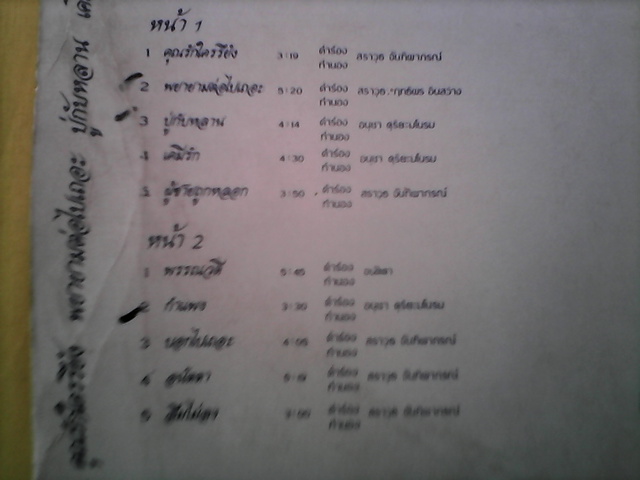 หน้า 1
1 คุณรักใครรึยัง 3:19 คำร้อง ทำนอง สราวุธ จันทิพาภรณ์
2 พยายามต่อไปเถอะ 5:20 คำร้อง ทำนอง สราวุธ
3 ปู่กับหลาน 4:14 คำร้อง ทำนอง อนุชา
4 เคมีรัก 4:30 คำร้อง ทำนอง อนุชา
5 ผู้ชายถูกหลอก 3:50 คำร้อง ทำนอง สราวุธ จันทิพาภรณ์
หน้า 2
1 พรรณวดี 5:45 คำร้อง ทำนอง
2 กำแพง 3:30 คำร้อง ทำนอง อนุชา
3 บอกไปเถอะ คำร้อง ทำนอง สราวุธ จันทิพาภรณ์
4 คำร้อง ทำนอง สราวุธ จันทิพาภรณ์
5 คำร้อง ทำนอง สราวุธ จันทิพาภรณ์
คุณรักใครรึยัง พยายามต่อไปเถอะ ปู่กับหลาน